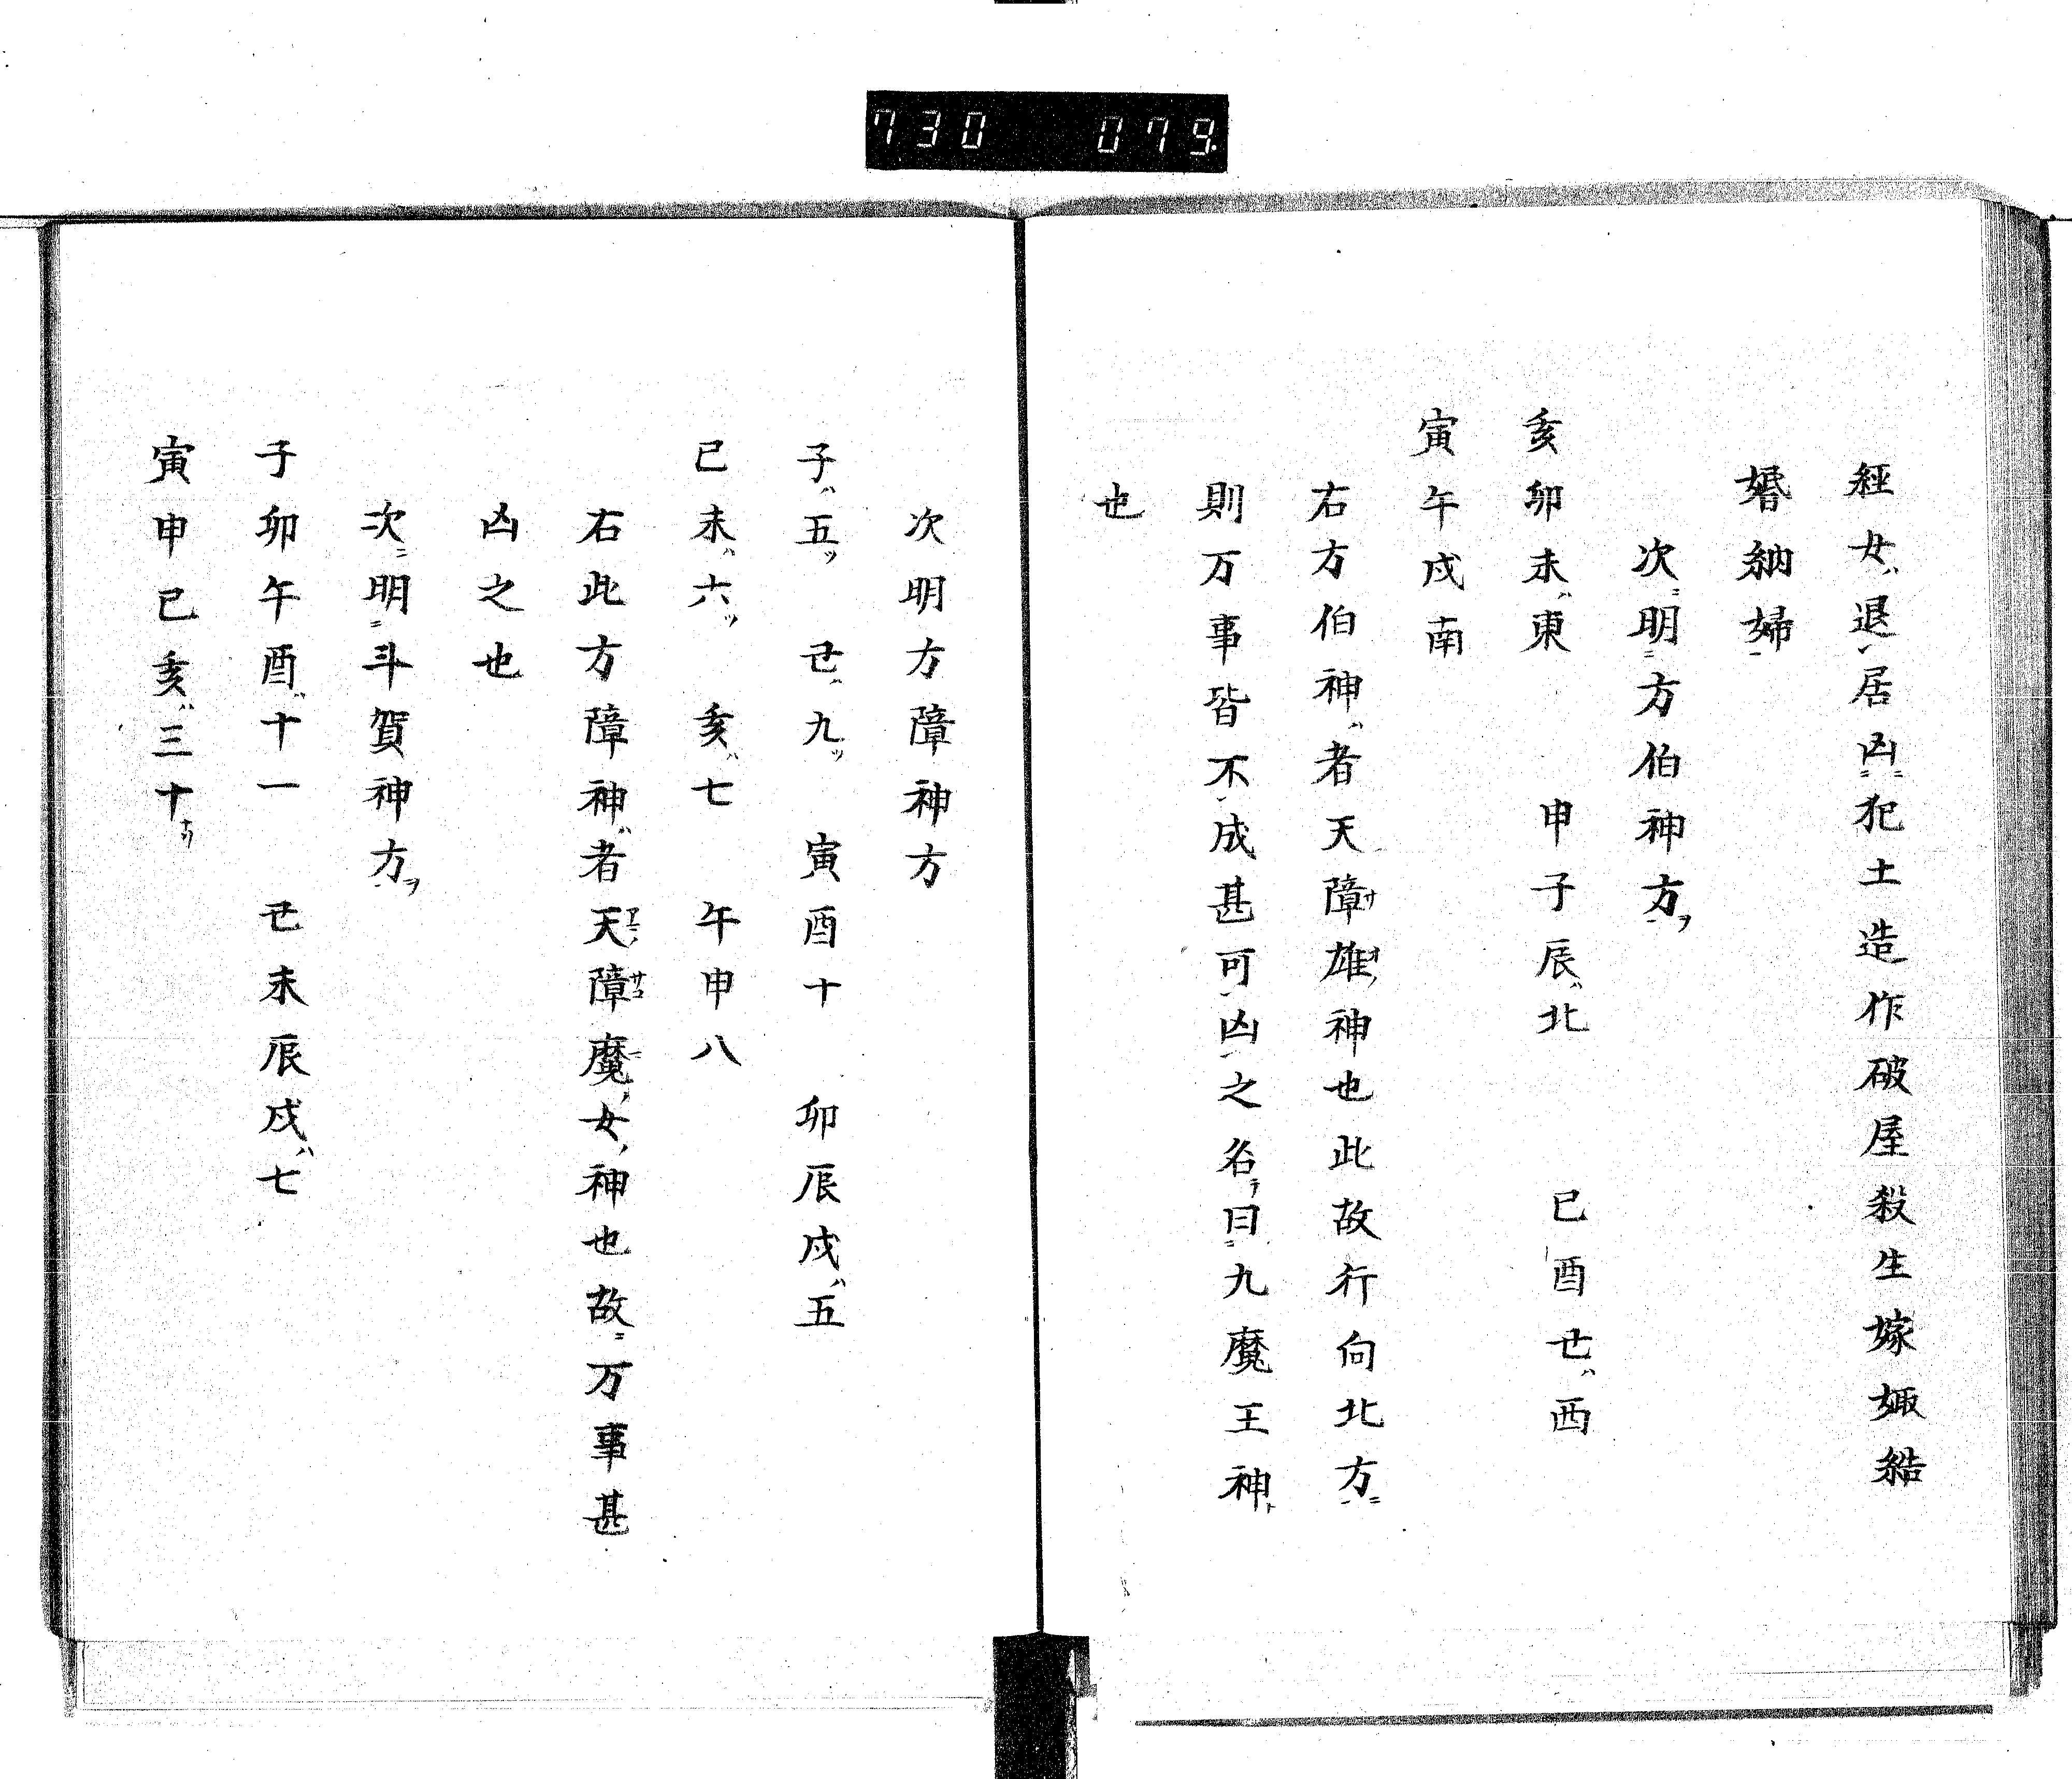 730 079.
經女ハ退居凶ニ犯土造作破屋殺生嫁娵結
婚納婦
次ニ明ニ方伯神方ヲ
亥卯未ハ東 申子辰ハ北 巳酉丑ハ西
寅午戌南
右方伯神ハ者天障雄神也此故行向北方ニ
則万事皆不成甚可凶之名テ曰ニ九魔王神ト
也
次明方障神方
子ハ五ツ 丑ハ九ツ 寅酉十 卯辰戌ハ五
巳未ハ六ツ 亥ハ七 午申八
右此方障神ハ者天障魔女神也故ニ万事甚
凶之也
次ニ明ニ斗賀神方ヲ
子卯午酉ハ十一 丑未辰戌ハ七
寅申巳亥ハ三十ナリ